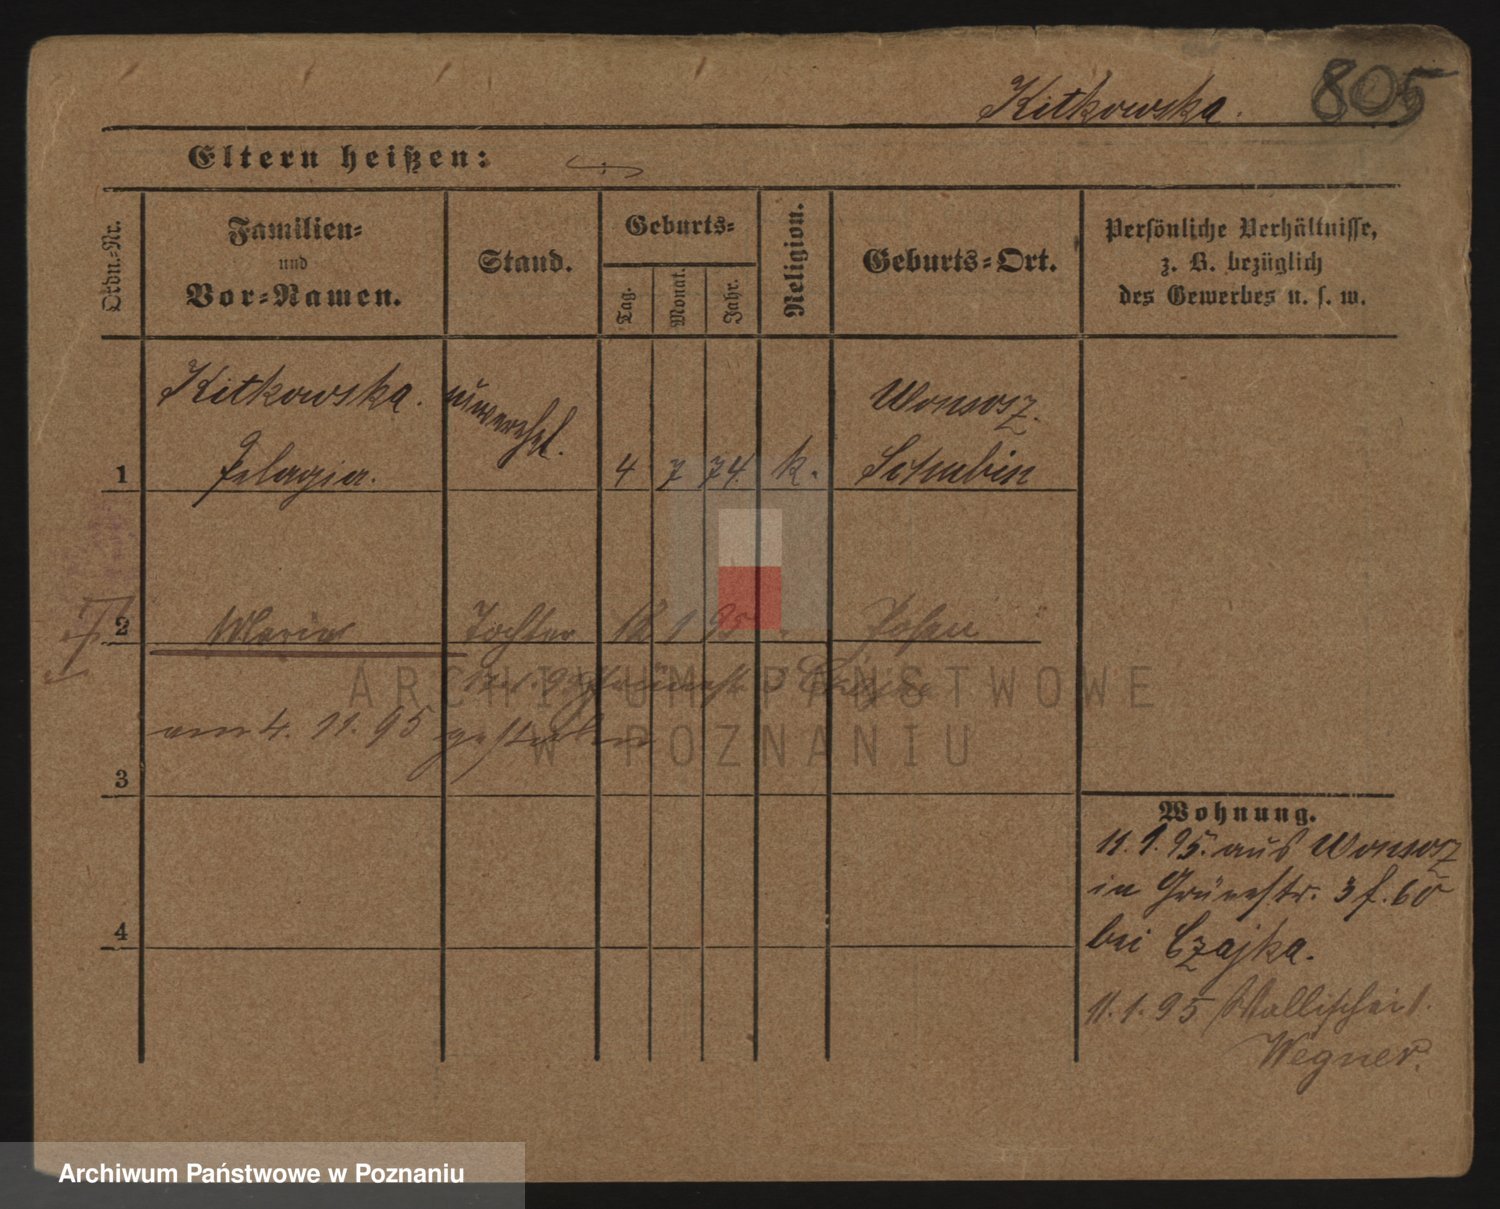 Kitkowska.
805
Eltern heißen:
Ordn.-Nr.
Familien-
und
Vor-Namen.
Stand.
Geburts-
Tag.
Monat.
Jahr.
Religion.
Geburts-Ort.
Persönliche Verhältnisse,
z. B. bezüglich
des Gewerbes u. s. w.
Kitkowska. unverehel. Wonsosz.
1 Pelagia. 4 7 74. k. Schubin
2 Maria Tochter 18 1 95 Posen
am 4. 11. 95 gestorben
3
4
Wohnung.
11. 1. 95. aus Wonsosz
in Grünestr. 3 f. 60
bei Czajka.
11. 1. 95 Wallischei 1.
Wegner.
ARCHIWUM PAŃSTWOWE
W POZNANIU
Archiwum Państwowe w Poznaniu